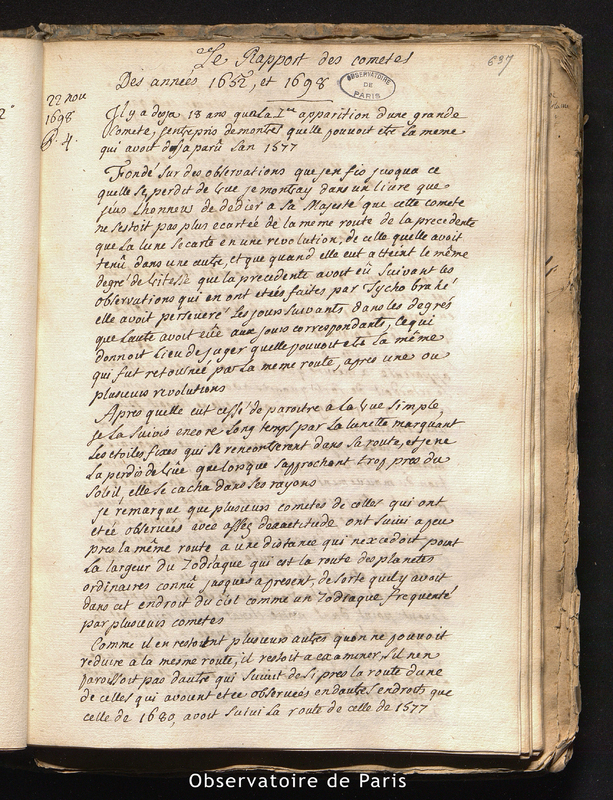 Le Rapport des cometes
637
Des années 1652, et 1698
OBSERVATOIRE
DE
PARIS
22 nou
1698
Il y a deja 18 ans que la I.re apparition dune grande
Comete, j'entrepris de montrer quelle pouvoit etre la meme
qui avoit deja paru lan 1577
Fondé sur des observations que jen fis jusqua ce
quelle se perdit de vue je montray dans un livre que
jeus lhonneur de dédier a Sa Majesté que cette comete
ne sestoit pas plus ecartée de la même route de la precedente
que la lune secarte en une revolution, de celle quelle avoit
tenû dans une autre, et que quand elle eut atteint le même
degré de vitesse que la precedente avoit eû suivant les
observations qui en ont etées faites par Tycho brahé
elle avoit perseveré les jours suivants dans les degrés
que lautre avoit eüe aux jours correspondants, Ce qui
donnoit lieu de juger quelle pouvoit etre la même
qui fut retournée par la meme route, apres une ou
plusieurs revolutions
Apres quelle eut cessé de paroitre a la vue simple,
je la suivis encore long temps par la lunette marquant
les etoiles fixes qui se rencontrerent dans sa route, et je ne
la perdis de vüe que lorsque sapprochant trop pres du
Soleil, elle se cacha dans ses rayons
je remarque que plusieurs cometes de celles qui ont
etée observées avec assez dexactitude ont suivi a peu
pres la même route a une distance qui nexcedoit point
la largeur du Zodiaque qui est la route des planetes
ordinaires connû jusques a present, de sorte quil y avoit
dans cet endroit du ciel comme un Zodiaque frequenté
par plusieurs cometes
Comme il en restoient plusieurs autres quon ne pouvoit
reduire a la mesme route, il restoit a examiner, sil nen
paroissoit pas dautre qui suivit de si pres la route dune
de celles qui avoient etée observées en dautres endroits que
celle de 1680, avoit suivi la route de celle de 1577
Observatoire de Paris